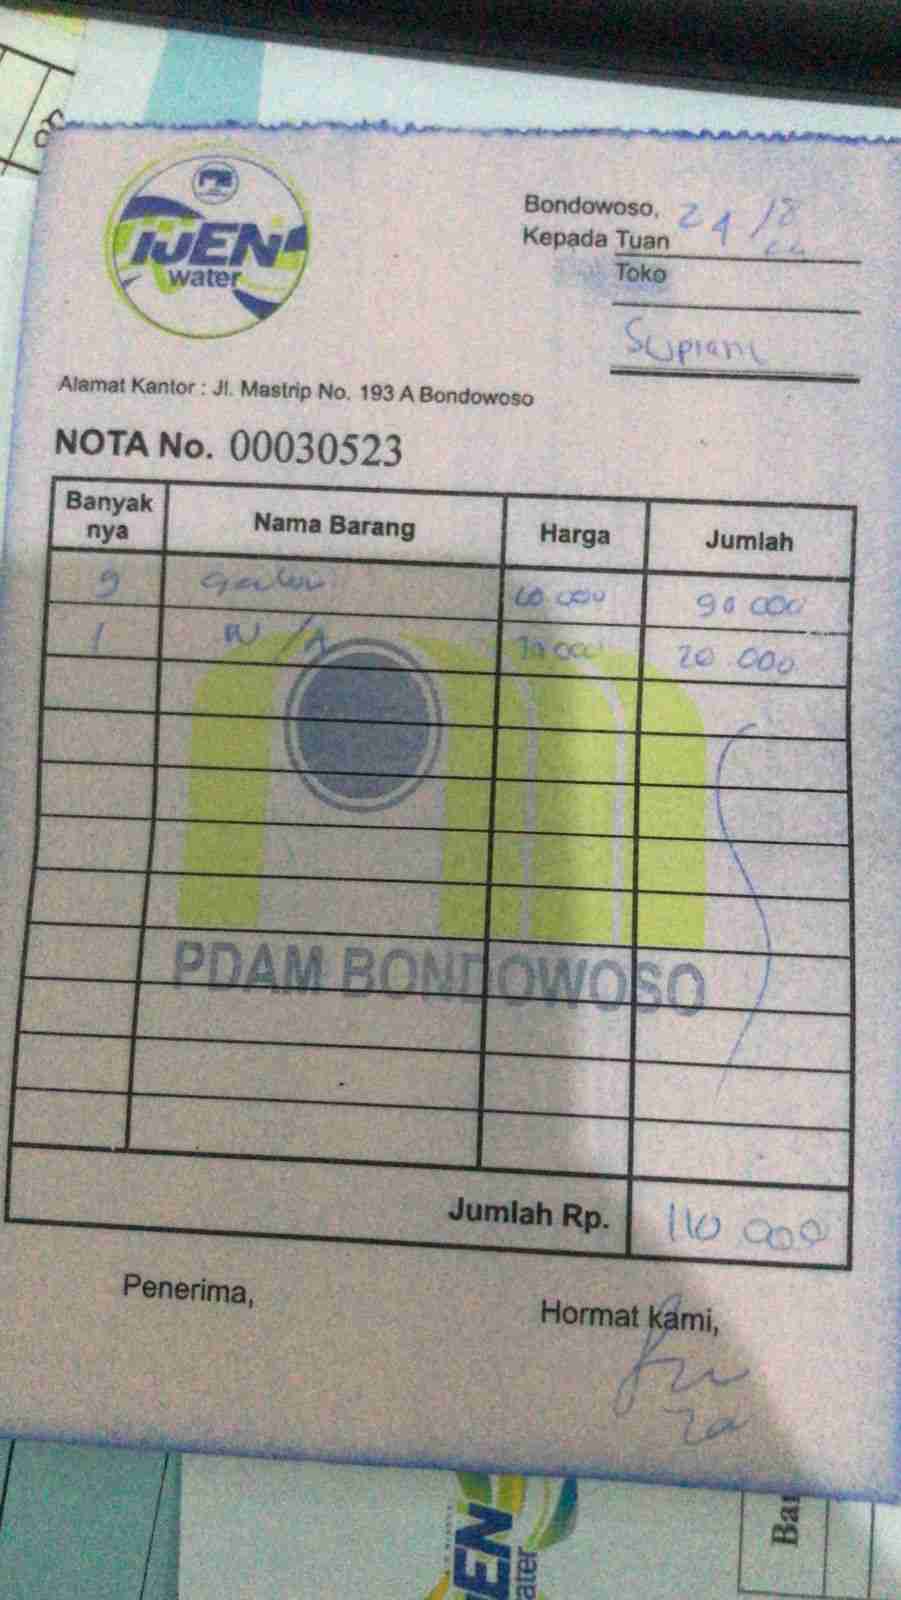 IJEN
water
Bondowoso, 24/8
22
Kepada Tuan
Toko
Supiani
Alamat Kantor : Jl. Mastrip No. 193 A Bondowoso
NOTA No. 00030523
Banyak nya Nama Barang Harga Jumlah
9 galon 10.000 90 000
1 20 000
PDAM BONDOWOSO
Jumlah Rp. 110 000
Penerima,
Hormat kami,
IJEN
water
Ba